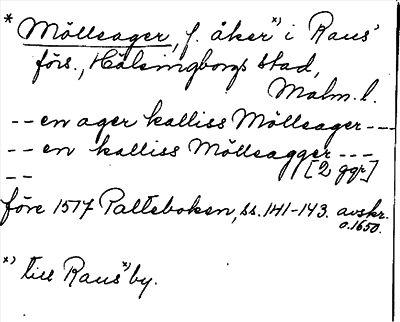 * Möllsager, f. åker *) i Raus'
förs., Hälsingborgs stad,
Malm. l.
-- en ager kalliss Möllsager ---
-- en kalliss Möllsagger ---
-- [2 ggr]
före 1517 Palteboken, ss. 141-143. avskr.
o. 1650.
*) till Raus *) by.